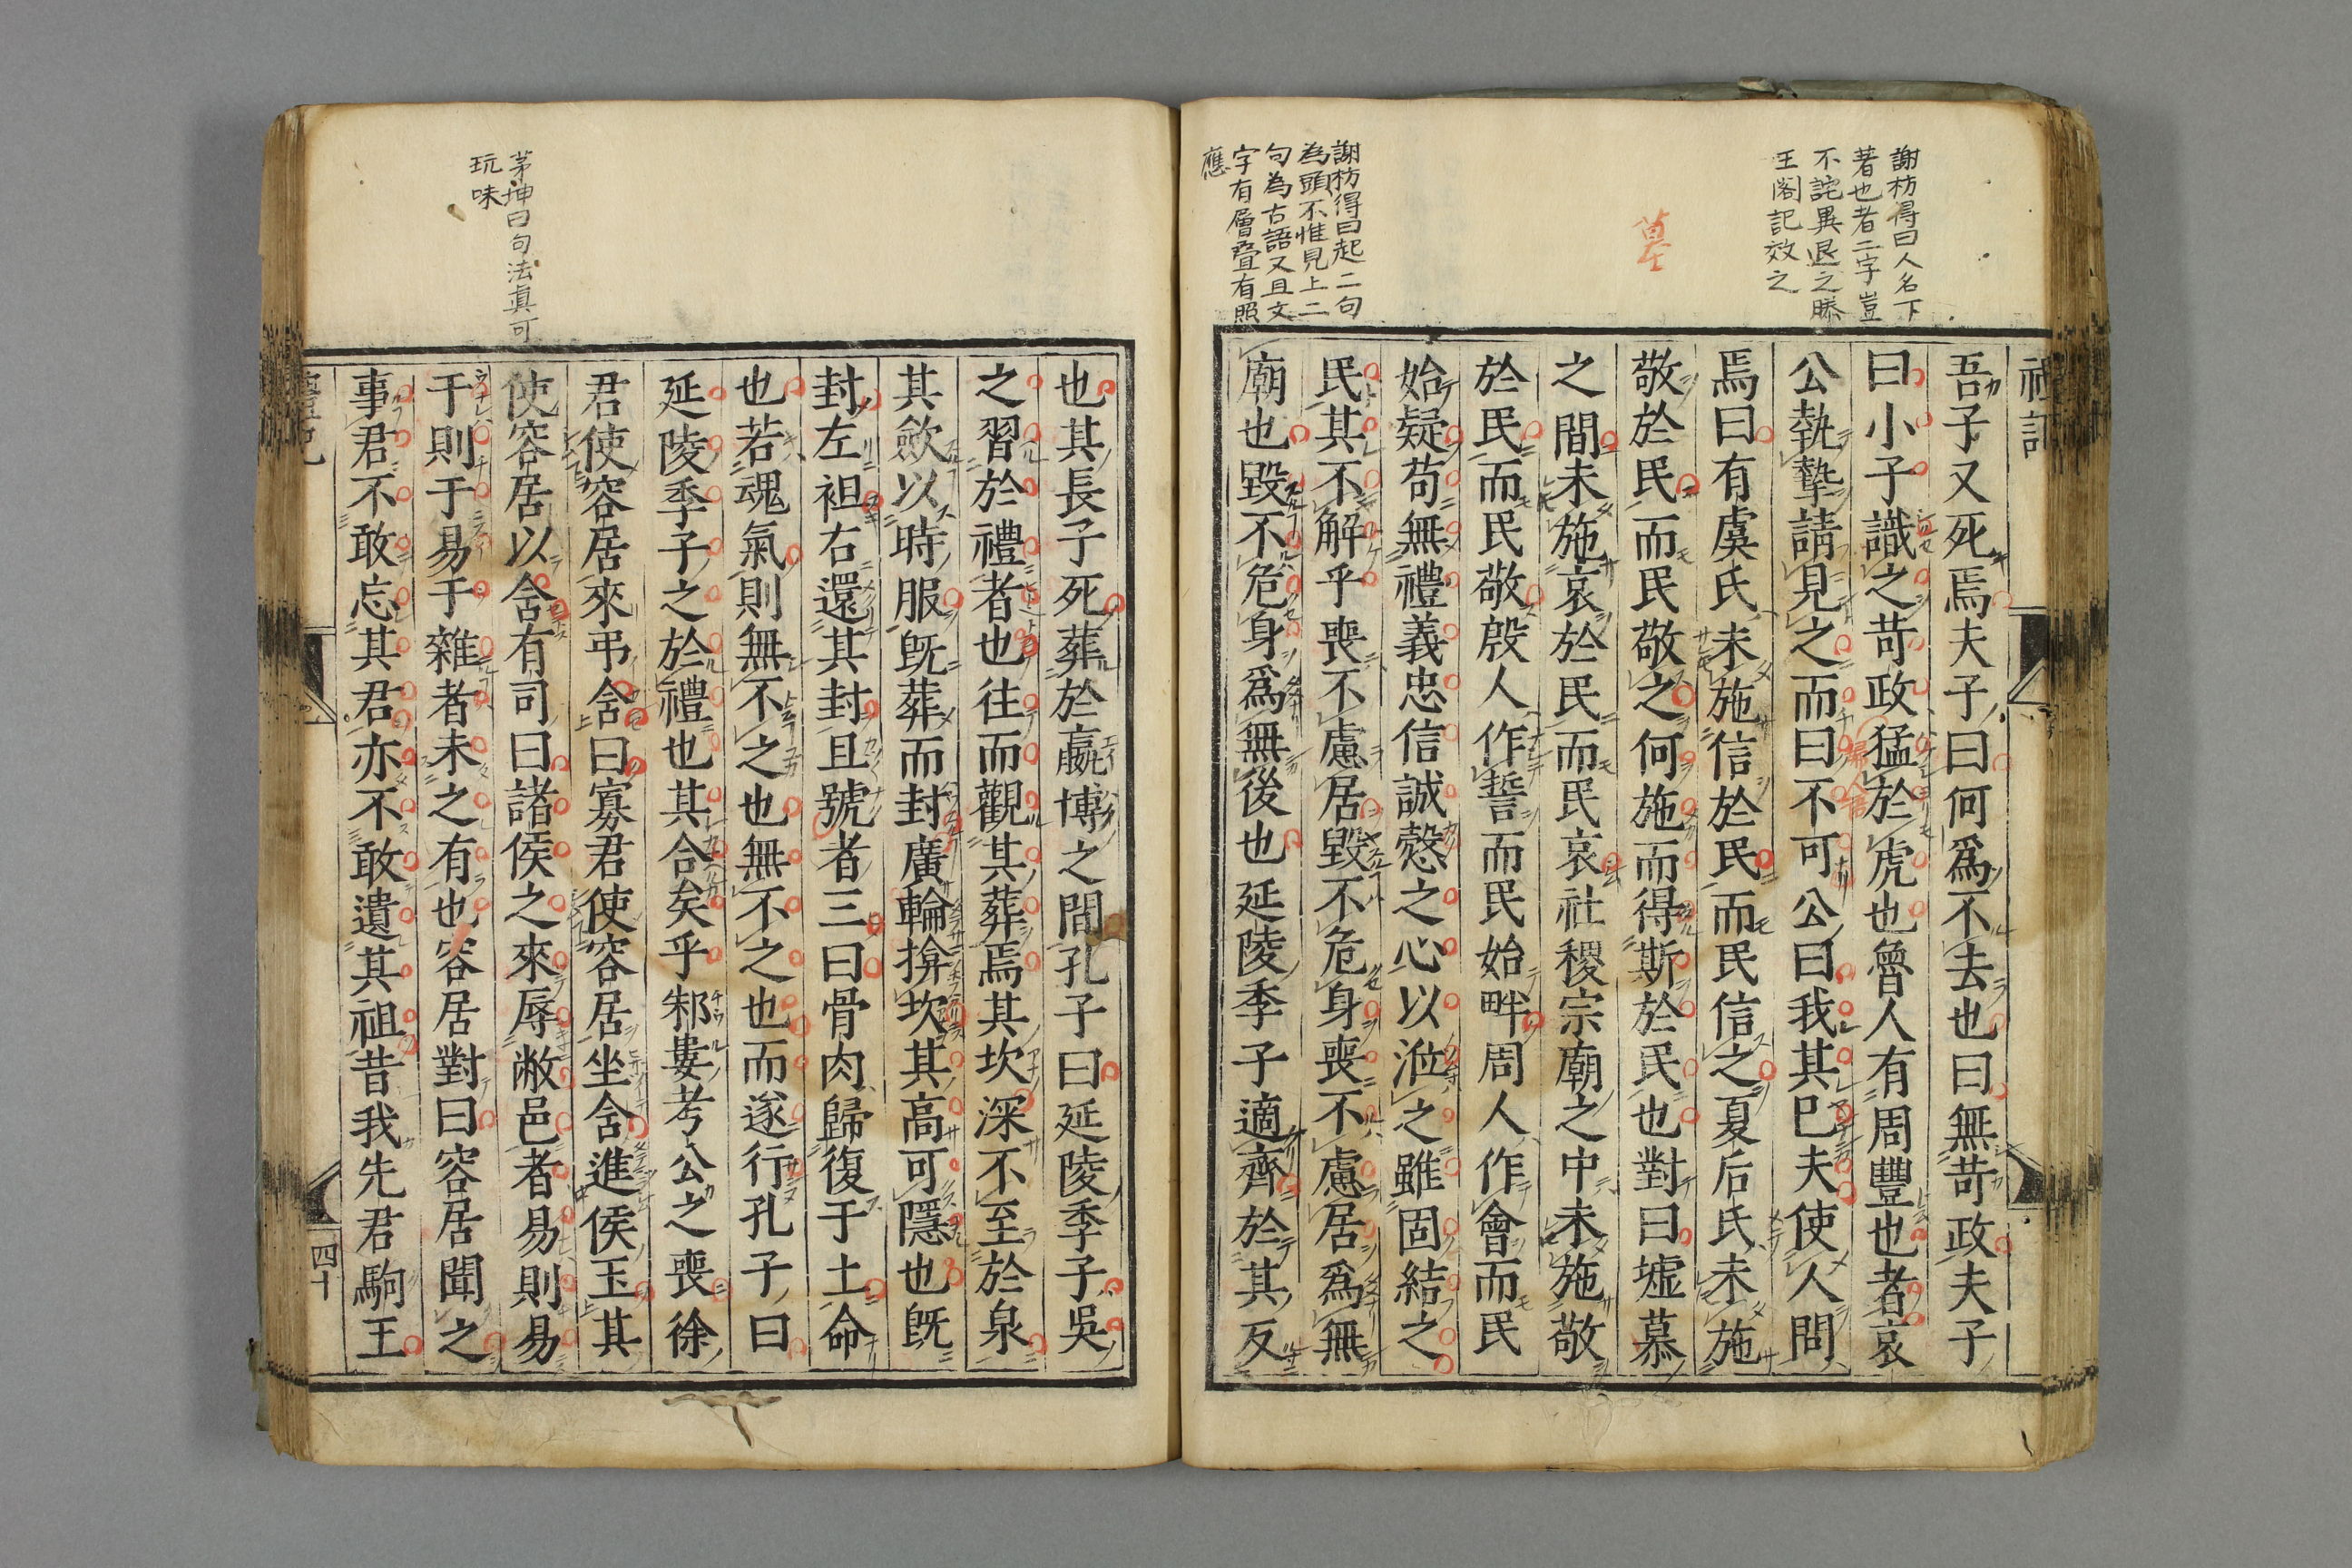 謝枋得曰人名下
著也者二字豈
不詫異退之滕
王閣記效之
墓
謝枋得曰起二句
為頭不惟見上二
句為古語又且文
字有層疊有照
應
禮記
吾子又死焉夫子曰何爲不去也曰無苛政夫子
曰小子識之苛政猛於虎也魯人有周豐也者哀
公執摯請見之而曰不可公曰我其已夫使人問
焉曰有虞氏未施信於民而民信之夏后氏未施
敬於民而民敬之何施而得斯於民也對曰墟慕
之間未施哀於民而民哀社稷宗廟之中未施敬
於民而民敬殷人作誓而民始畔周人作會而民
始疑苟無禮義忠信誠慤之心以涖之雖固結之
民其不解乎喪不慮居毀不危身喪不慮居爲無
廟也毀不危身爲無後也延陵季子適齊於其反
茅坤曰句法真可
玩味
也其長子死葬於嬴博之間孔子曰延陵季子吳
之習於禮者也往而觀其葬焉其坎深不至於泉
其斂以時服既葬而封廣輪揜坎其高可隱也既
封左袒右還其封且號者三曰骨肉歸復于土命
也若魂氣則無不之也無不之也而遂行孔子曰
延陵季子之於禮也其合矣乎邾婁考公之喪徐
君使容居來弔含曰寡君使容居坐含進侯玉其
使容居以含有司曰諸侯之來辱敝邑者易則易
于則于易于雜者未之有也容居對曰容居聞之
事君不敢忘其君亦不敢遺其祖昔我先君駒王
四十